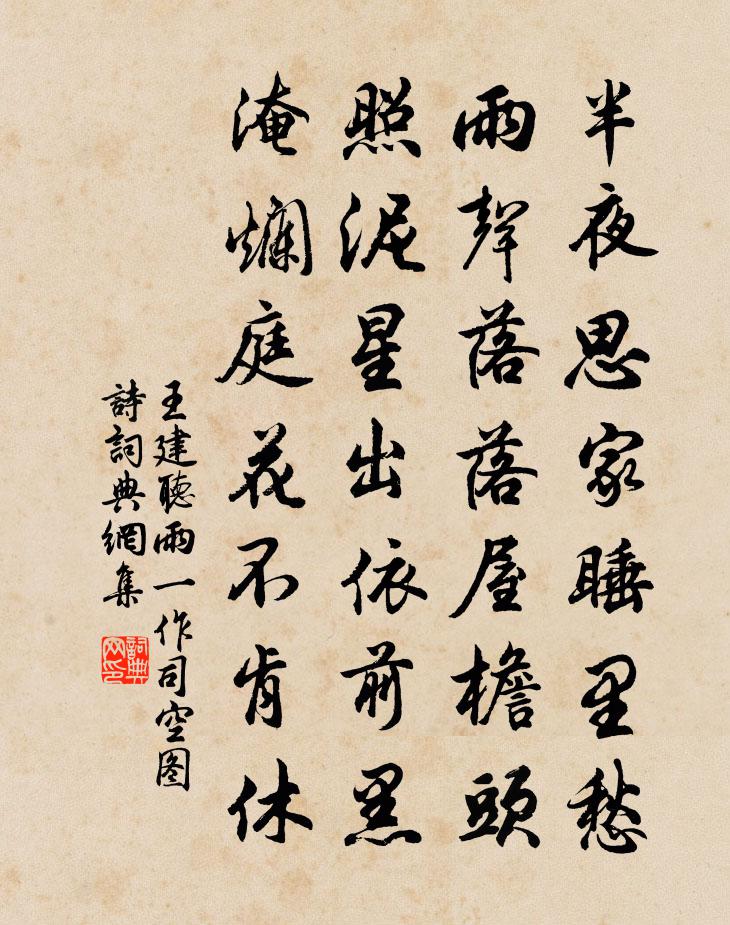 半夜思家睡里愁
雨聲落落屋檐頭
照泥星出依前黑
淹爛庭花不肯休
王建聽雨一作司空图
詩詞典網集
詞典网印